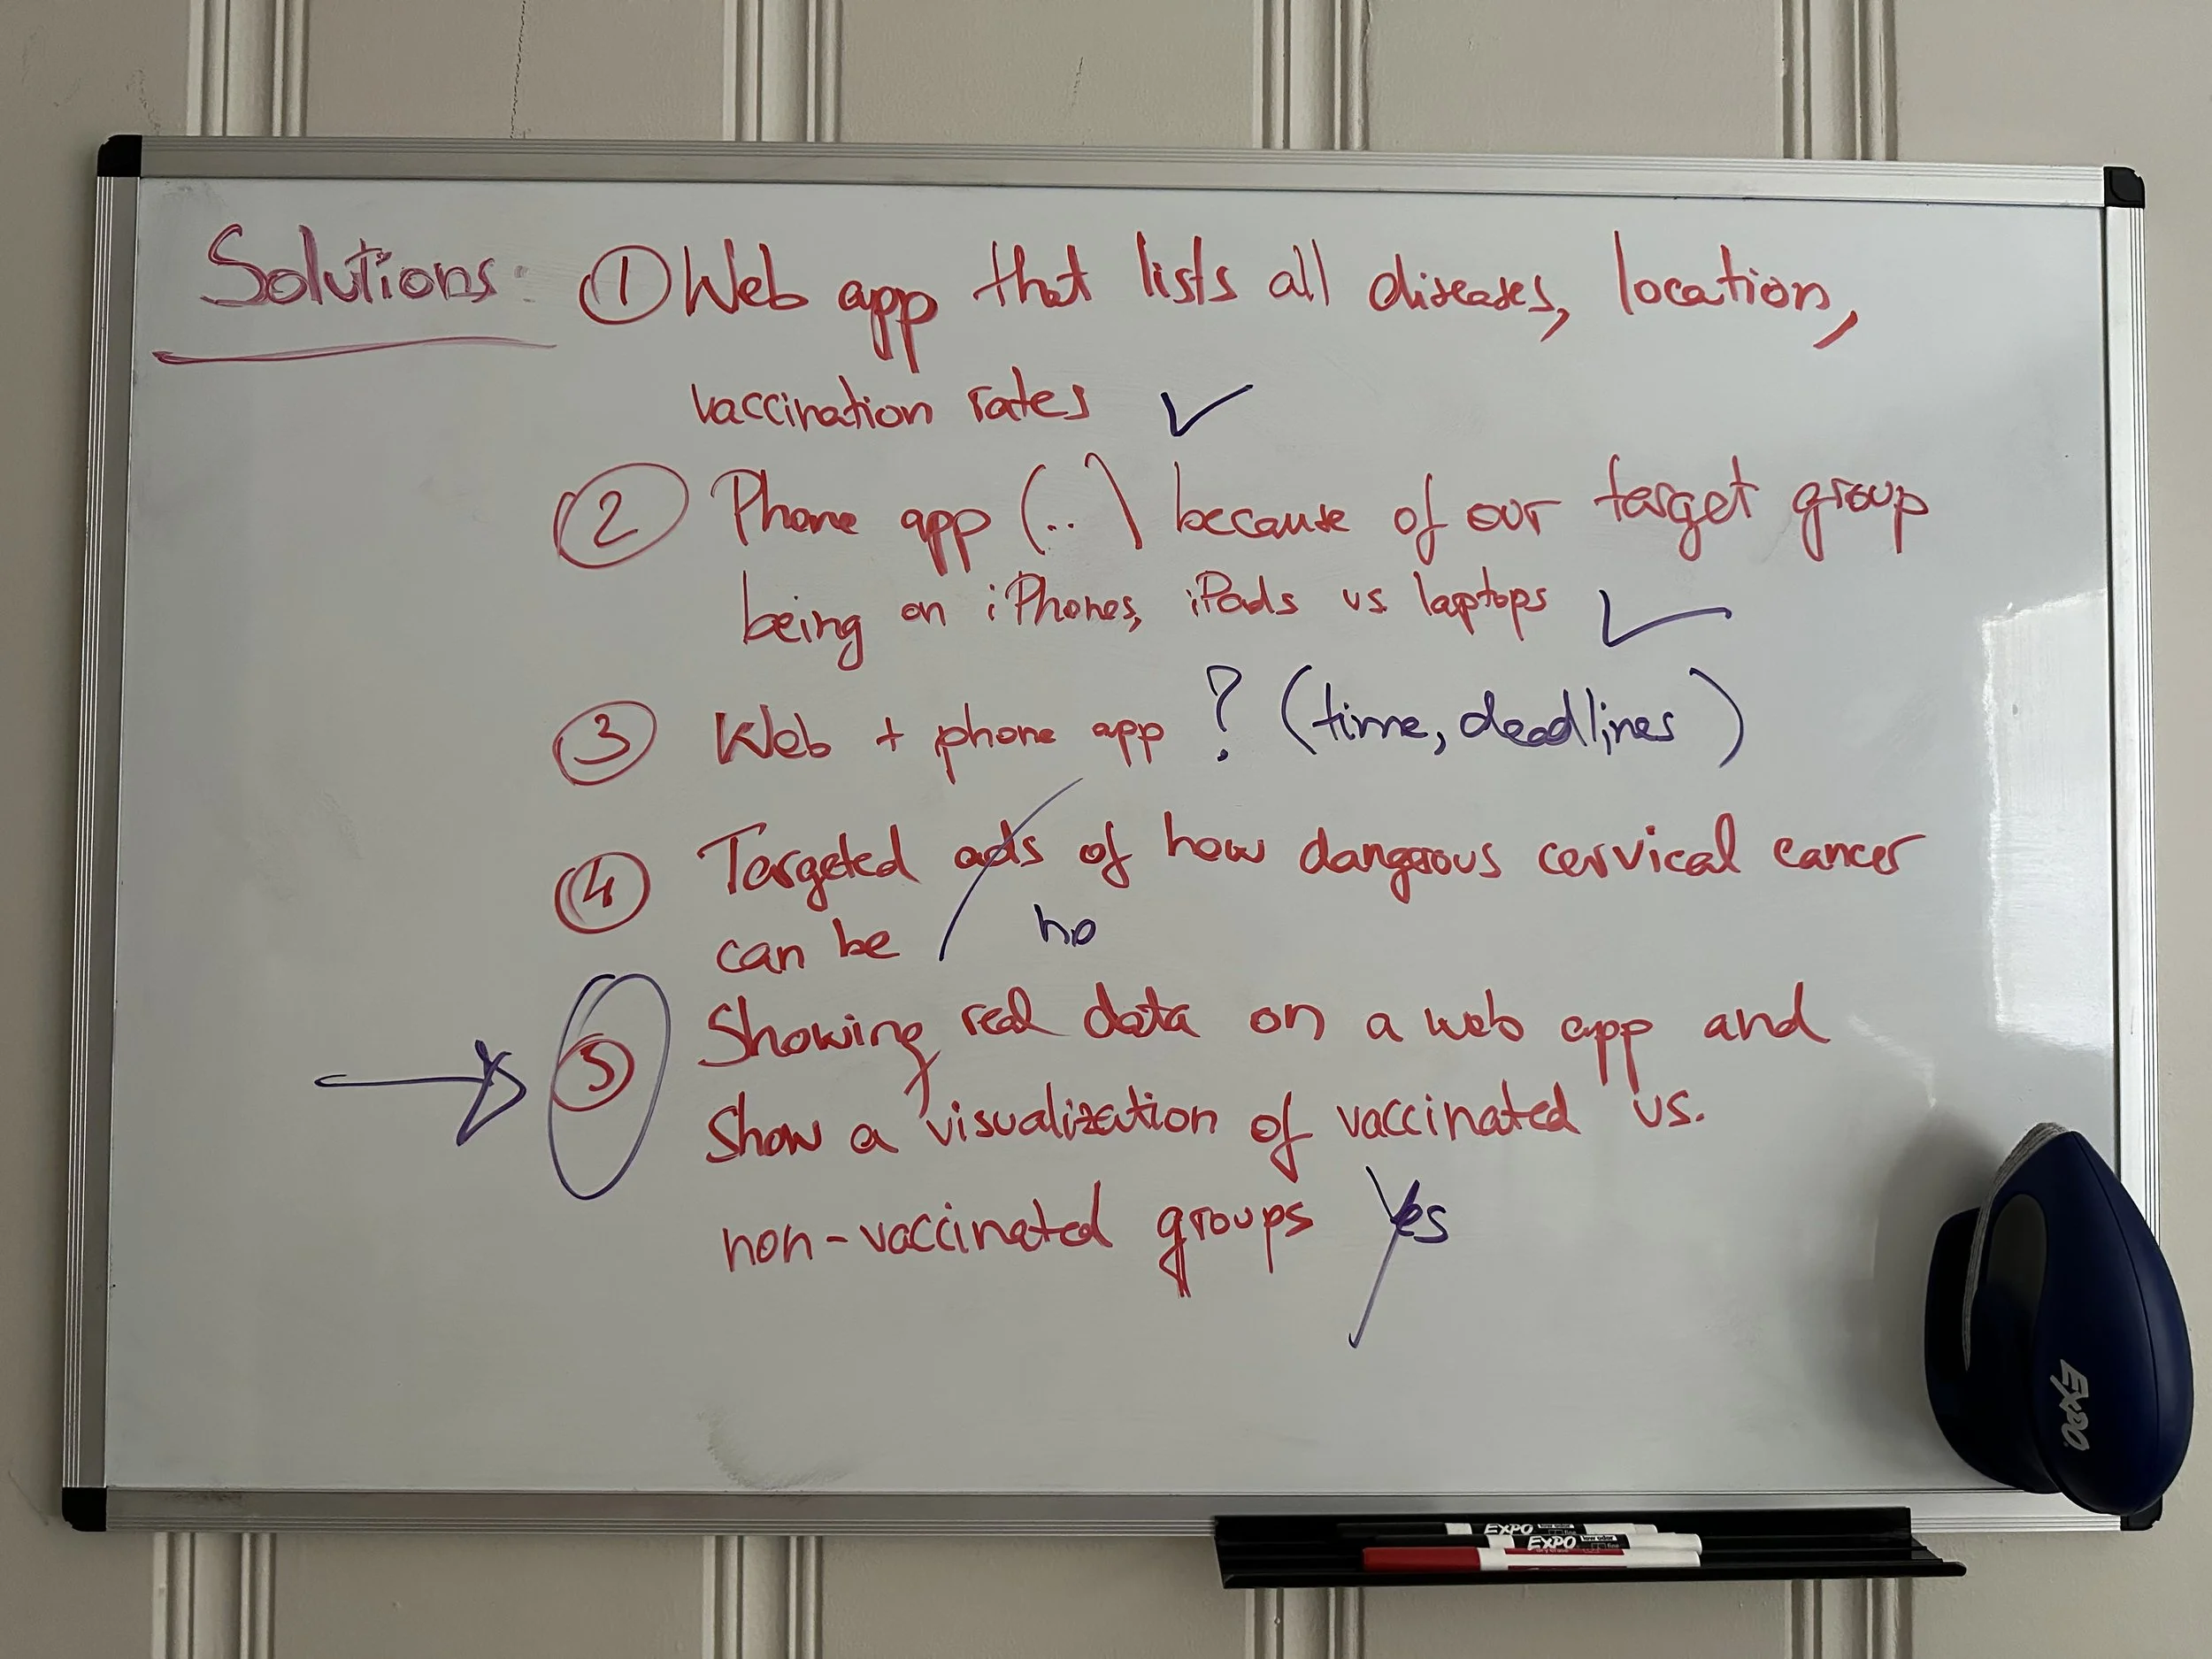 Solutions: ① Web app that lists all diseases, location,
vaccination rates ✓
② Phone app (..) because of our target group
being on iPhones, iPads vs laptops ✓
③ Web + phone app ? (time, deadlines)
④ Targeted ads of how dangerous cervical cancer
can be no
→ ⑤ Showing real data on a web app and
show a visualization of vaccinated vs.
non-vaccinated groups Yes
EXPO
EXPO
EXPO